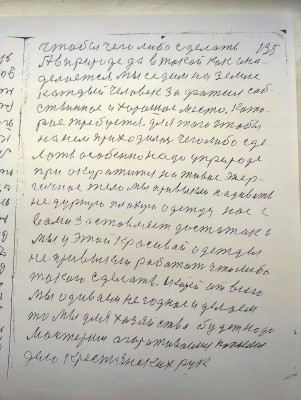 чтобы чего либо сделать 135
А в природе да в такой как она
делается мы сидим на земле
каждый человек заражен соб
ственное и хорошее место. Кото
рое требуется для того чтобы
на нем приходилось чего либо сде
лать особенно надо природе
при окружится на живое энер
гичное тело мы привыкли надевать
не дурную плохую одежду нас с
вами заставляет достатка
мы у этой красивой одежды
не привыкли работать что либо
такого сделать. от всего
мы одеваем не годное и делаем
то мы для хозяйства будет надо
мастерим огораживаем копаем
дело крестьянских рук